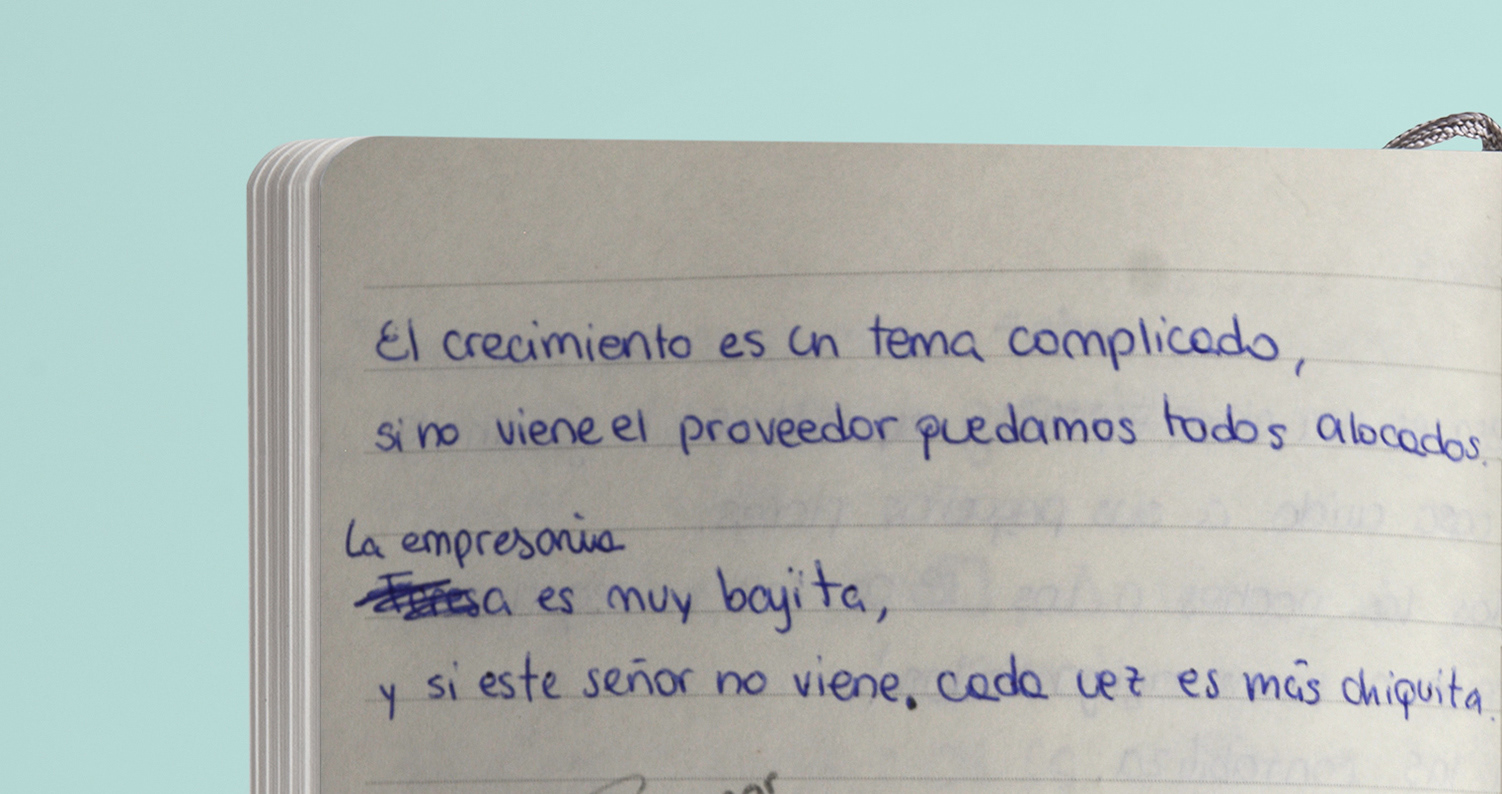 El crecimiento es un tema complicado,
si no viene el proveedor quedamos todos alocados.
La empresaria
es muy bajita,
y si este señor no viene. cada vez es más chiquita.